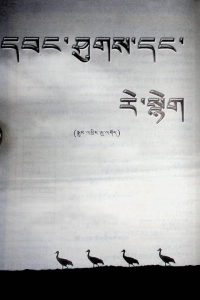 དབང་ཤུགས་དང་
རེ་སྙེག